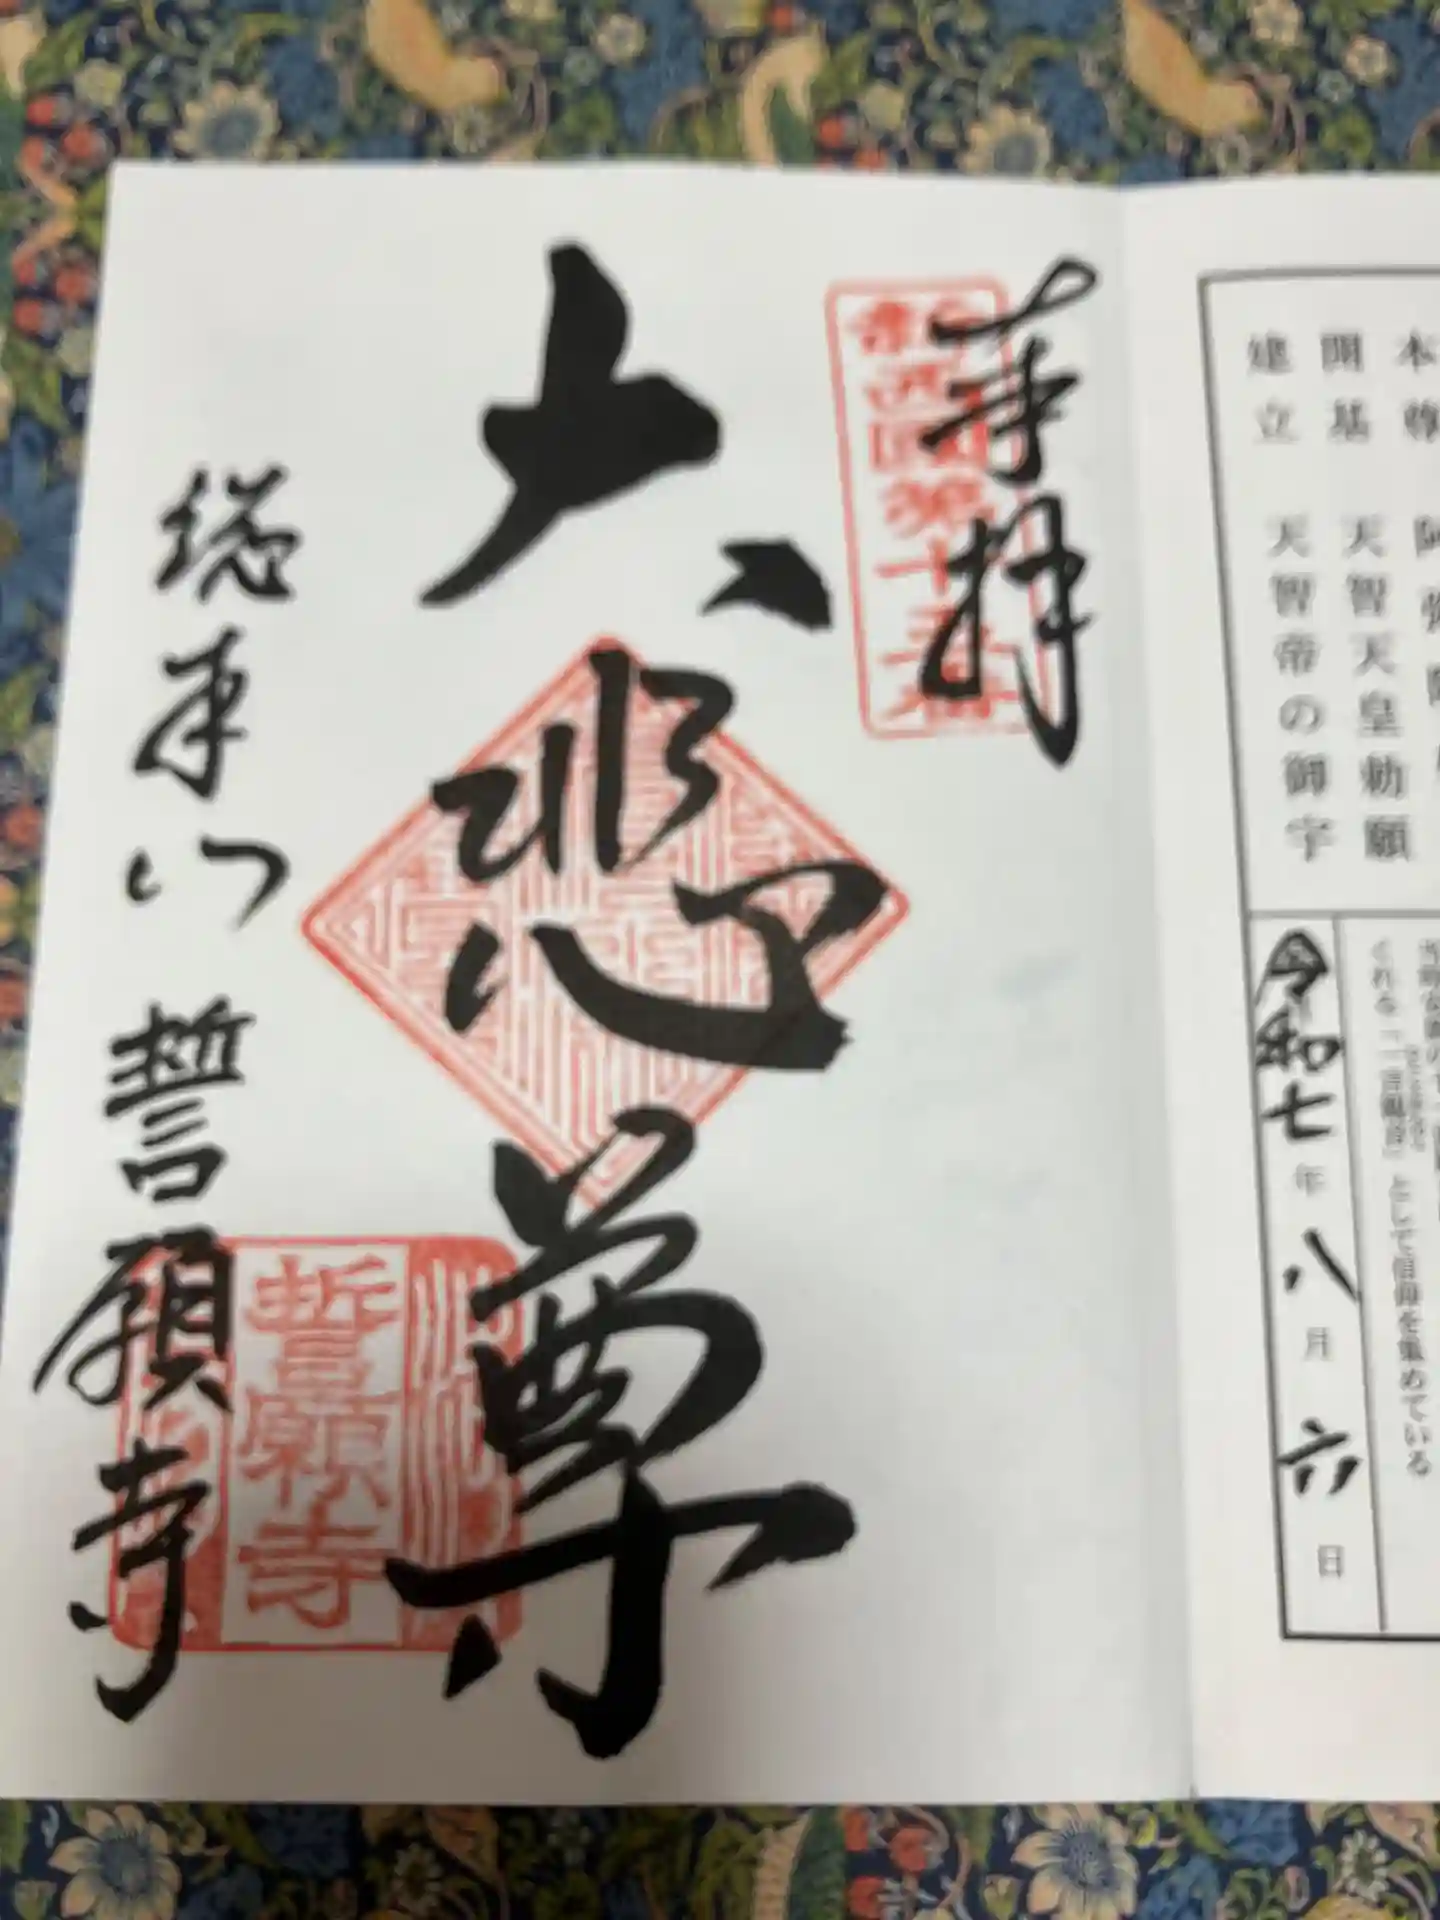 本尊 阿弥陀
開基 天智天皇勅願
建立 天智帝の御宇
くれる「一言観音」として信仰を集めている
令和七年八月六日
奉拝
新西国第十五番
大悲尊
総本山 誓願寺
誓願寺